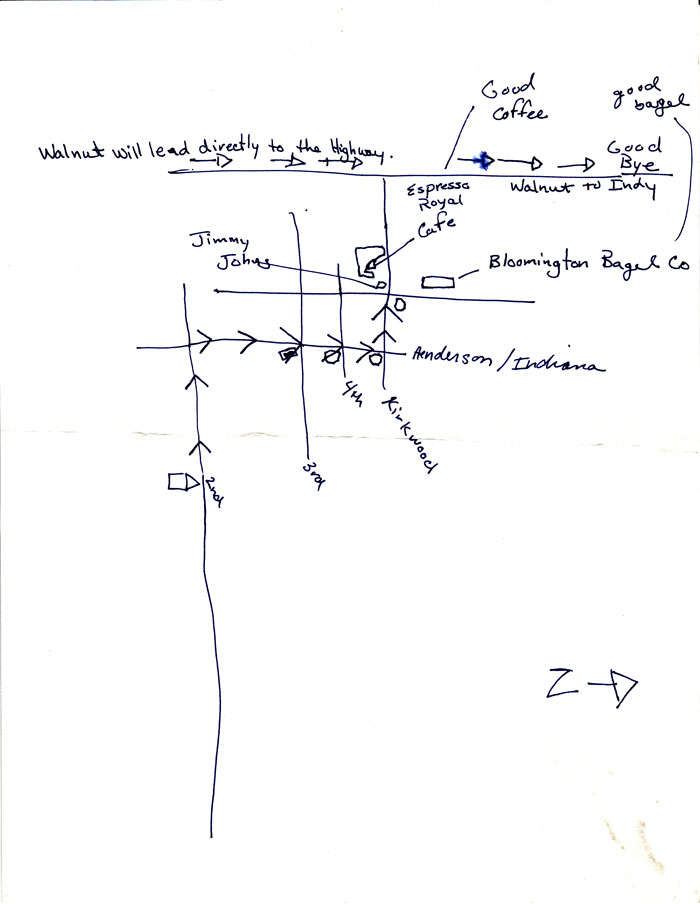 Good
Coffee
good
bagel
Walnut will lead directly to the Highway.
Good
Bye
Espresso
Royal
Cafe
Walnut to Indy
Jimmy
Johns
Bloomington Bagel Co
Henderson / Indiana
4th
Kirkwood
3rd
2nd
Z